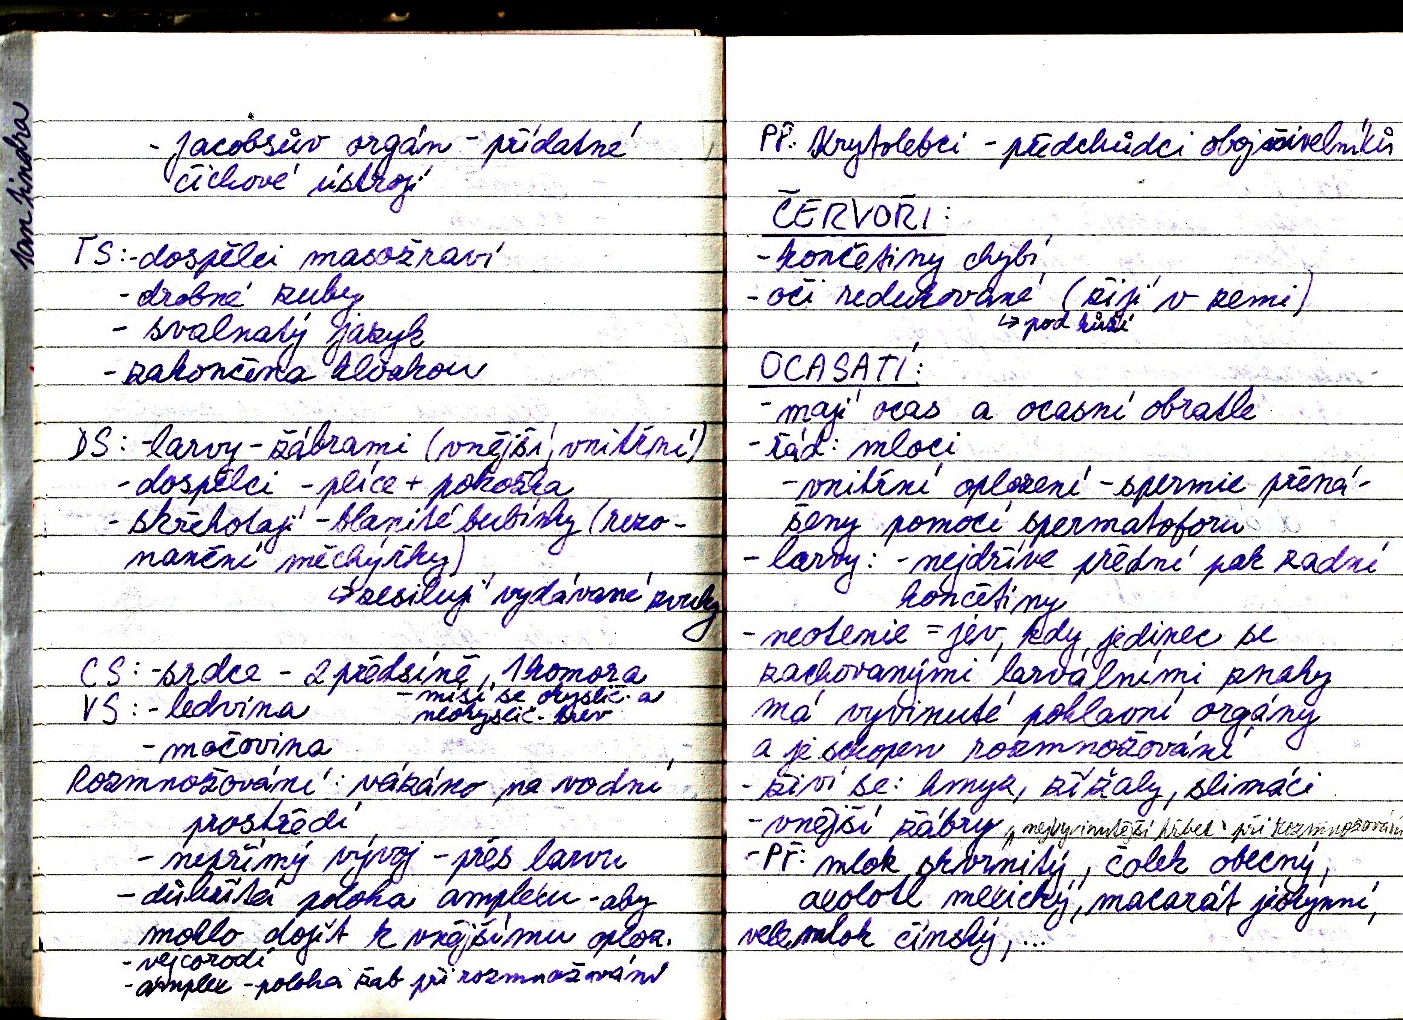 - Jacobsův orgán - přídatné
čichové ústrojí
TS: - dospělci masožraví
- drobné zuby
- svalnatý jazyk
- zakončena kloakou
DS: - larvy - žábrami (vnější, vnitřní)
- dospělci - plíce + pokožka
- skřehotají - blanité bubínky (rezo-
nanční měchýřky)
↳ zesilují vydávané zvuky
CS: - srdce - 2 předsíně, 1 komora
- mísí se okyslič. a
neokyslič. krev
VS: - ledvina
- močovina
Rozmnožování: vázáno na vodní
prostředí
- nepřímý vývoj - přes larvu
- důležitá poloha amplexu - aby
mohlo dojít k vnějšímu oploz.
- vejcorodí
- amplex - poloha žab při rozmnožování
Př: Krytolebci - předchůdci obojživelníků
ČERVOŘI:
- končetiny chybí
- oči redukované (žijí v zemi)
↳ pod kůží
OCASATÍ:
- mají ocas a ocasní obratle
- řád: mloci
- vnitřní oplození - spermie přená-
šeny pomocí spermatoforu
- larvy: - nejdříve přední pak zadní
končetiny
- neotenie = jev, kdy jedinec se
zachovanými larválními znaky
má vyvinuté pohlavní orgány
a je schopen rozmnožování
- živí se: hmyz, žížaly, slimáci
- vnější žábry, nejvyvinutější hřbet při rozmnožování
- Př: mlok skvrnitý, čolek obecný,
axolotl mexický, macarát jeskynní,
velemlok čínský, ...